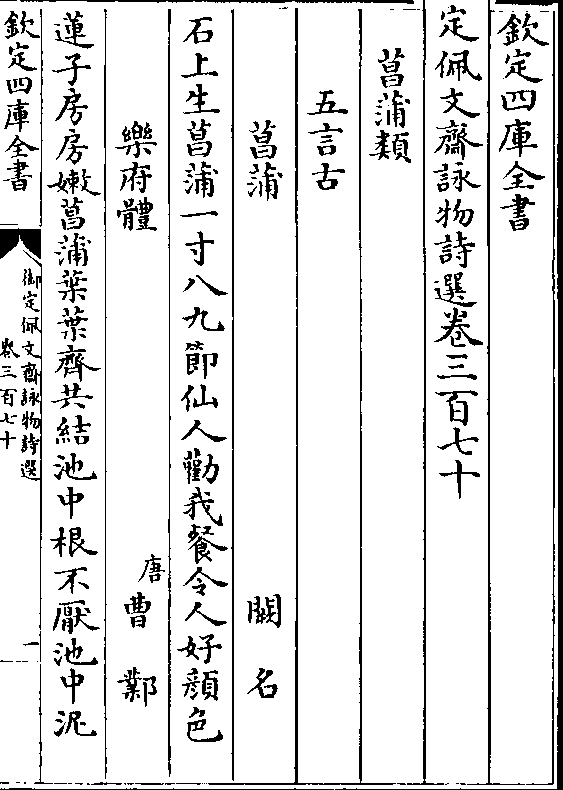 欽定四庫全書
定佩文齋詠物詩選卷三百七十
菖蒲類
五言古
菖蒲 闕名
石上生菖蒲一寸八九節仙人勸我餐令人好顔色
樂府體 唐曹鄴
蓮子房房嫩菖蒲葉葉齊共結池中根不厭池中泥
欽定四庫全書
御定佩文齋詠物詩選
卷三百七十
一